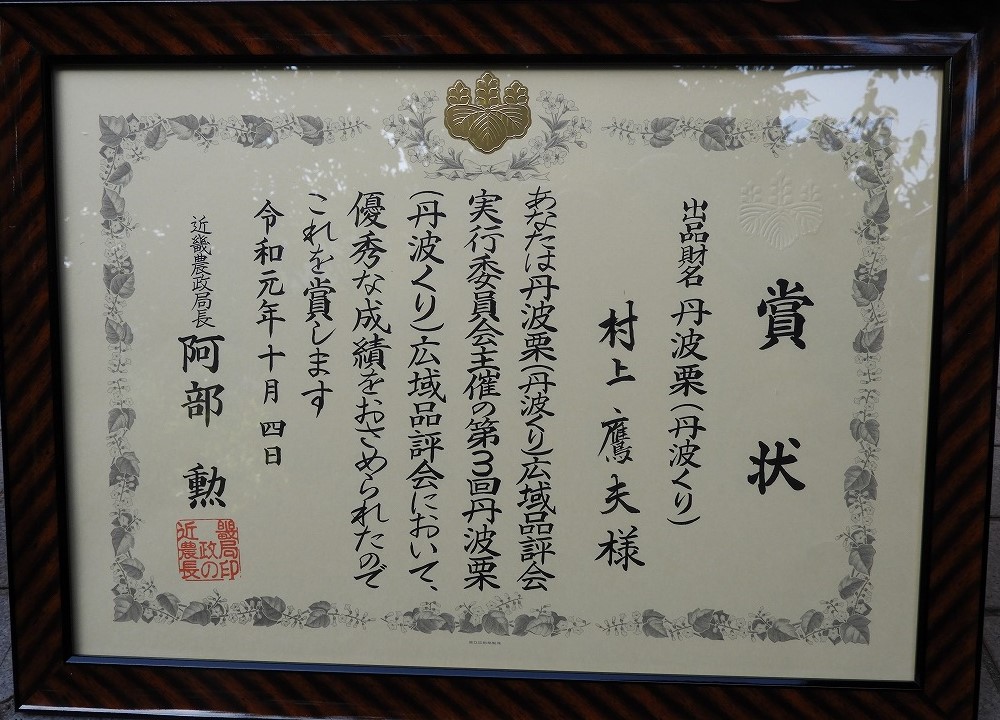 賞状
出品財名 丹波栗(丹波くり)
村上 鷹夫 様
あなたは丹波栗(丹波くり)広域品評会
実行委員会主催の第3回丹波栗
(丹波くり)広域品評会において、
優秀な成績をおさめられたので
これを賞します
令和元年十月四日
近畿農政局長 阿部 勲
近畿農政局長の印